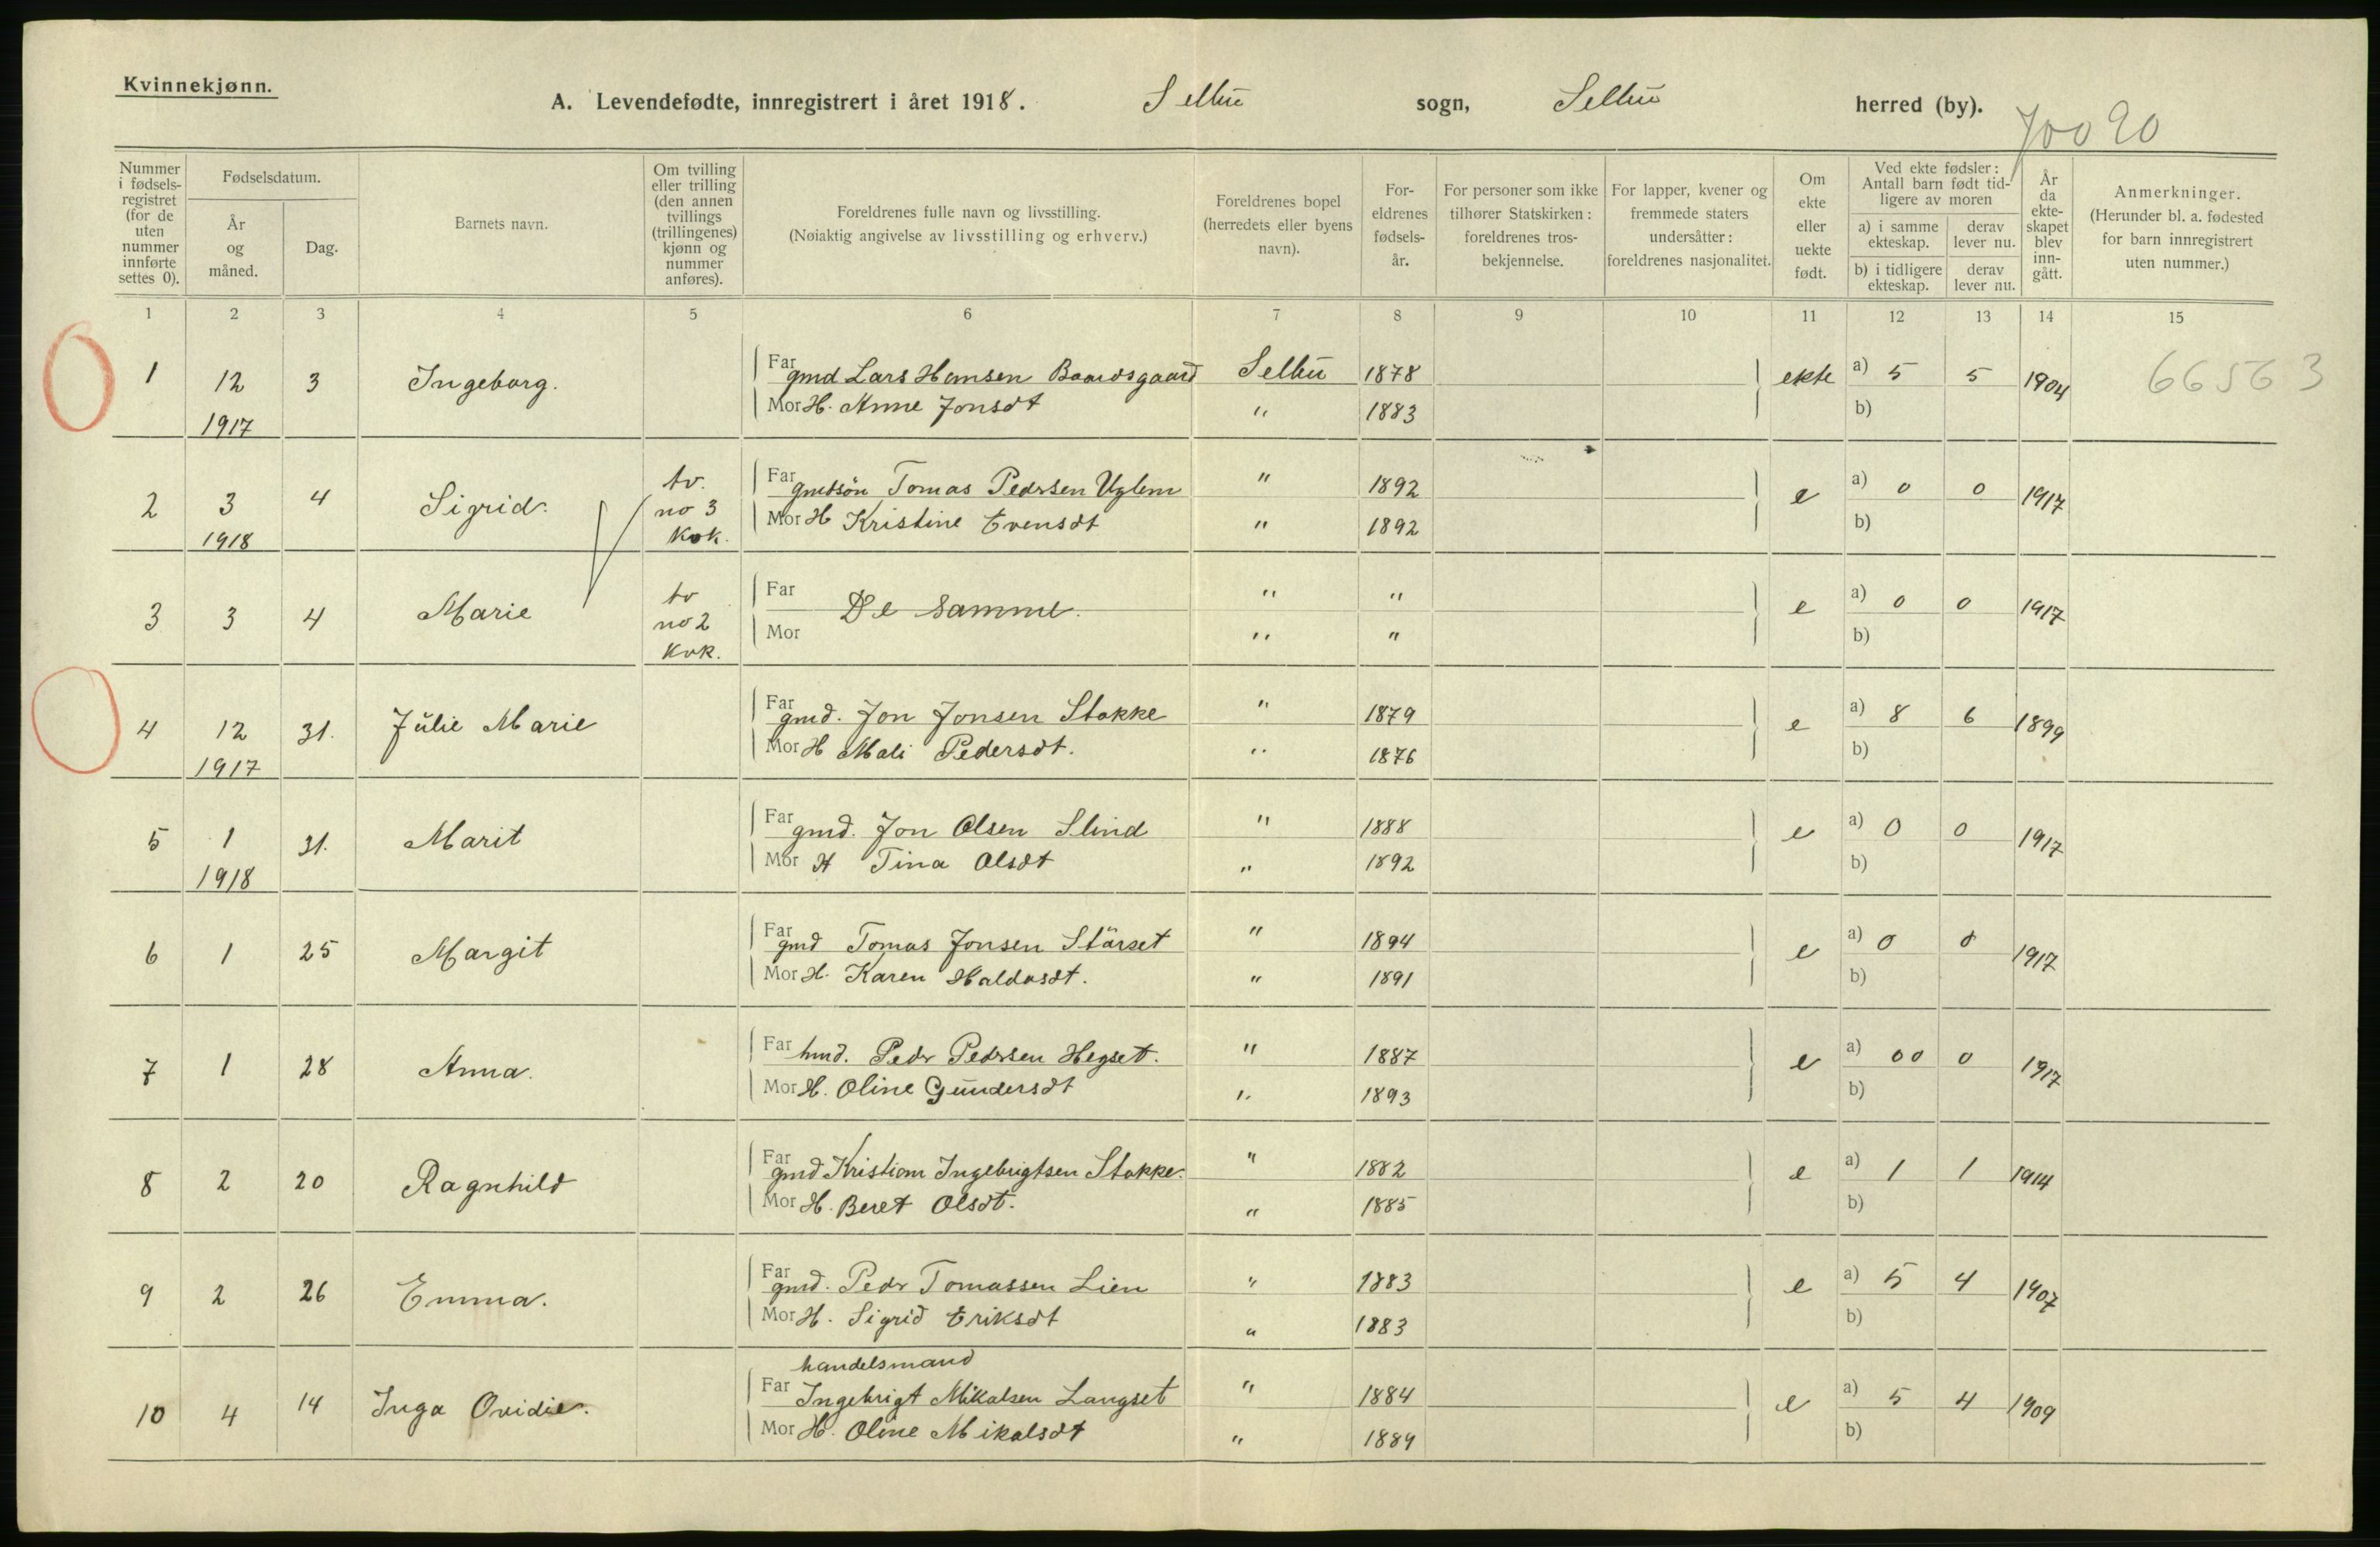 Kvinnekjønn.
A. Levendefødte, innregistrert i året 1918. Selbu sogn, Selbu herred (by).
70090
Nummer i fødsels-registret (for de uten nummer innførte settes 0).
Fødselsdatum.
År og måned.
Dag.
Barnets navn.
Om tvilling eller trilling (den annen tvillings (trillingenes) kjønn og nummer anføres).
Foreldrenes fulle navn og livsstilling.
(Nøiaktig angivelse av livsstilling og erhverv.)
Foreldrenes bopel (herredets eller byens navn).
For-eldrenes fødsels-år.
For personer som ikke tilhører Statskirken: foreldrenes tros-bekjennelse.
For lapper, kvener og fremmede staters undersåtter: foreldrenes nasjonalitet.
Om ekte eller uekte født.
Ved ekte fødsler: Antall barn født tid-ligere av moren
a) i samme ekteskap.
derav lever nu.
b) i tidligere ekteskap.
derav lever nu.
År da ekte-skapet blev inn-gått.
Anmerkninger.
(Herunder bl. a. fødested for barn innregistrert uten nummer.)
1 2 3 4 5 6 7 8 9 10 11 12 13 14 15
1 12 1917 3 Ingeborg. Far gmd Lars Hansen Baardsgaard Selbu 1878 ekte a) 5 5 1904 66563
Mor H. Anne Jonsdt " 1883 b)
2 3 1918 4 Sigrid. tv. no 3 Kvk. Far gmdsøn Tomas Pedrsen Uglem " 1892 e a) 0 0 1917
Mor H Kristine Evensdt " 1892 b)
3 3 4 Marie tv no 2 Kvk. Far De samme. " " e a) 0 0 1917
Mor " " b)
4 12 1917 31. Julie Marie Far gmd. Jon Jonsen Stokke " 1879 e a) 8 6 1899
Mor H Mali Pedersdt. " 1876 b)
5 1 1918 31. Marit Far gmd. Jon Olsen Slind " 1888 e a) 0 0 1917
Mor H Tina Olsdt " 1892 b)
6 1 25 Margit Far gmd Tomas Jonsen Stårset " 1894 e a) 0 0 1917
Mor H. Karen Haldosdt. " 1891 b)
7 1 28 Anna. Far hmd. Pedr Pedrsen Hegset. " 1887 e a) 00 0 1917
Mor H. Oline Gundersdt " 1893 b)
8 2 20 Ragnhild Far gmd Kristian Ingebrigtsen Stokke. " 1882 e a) 1 1 1914
Mor H. Beret Olsdt. " 1885 b)
9 2 26 Emma. Far gmd. Pedr Tomassen Lien " 1883 e a) 5 4 1907
Mor H. Sigrid Eriksdt " 1883 b)
handelsmand
10 4 14 Inga Ovidie. Far Ingebrigt Mikalsen Langset " 1884 e a) 5 4 1909
Mor H. Oline Mikalsdt " 1889 b)